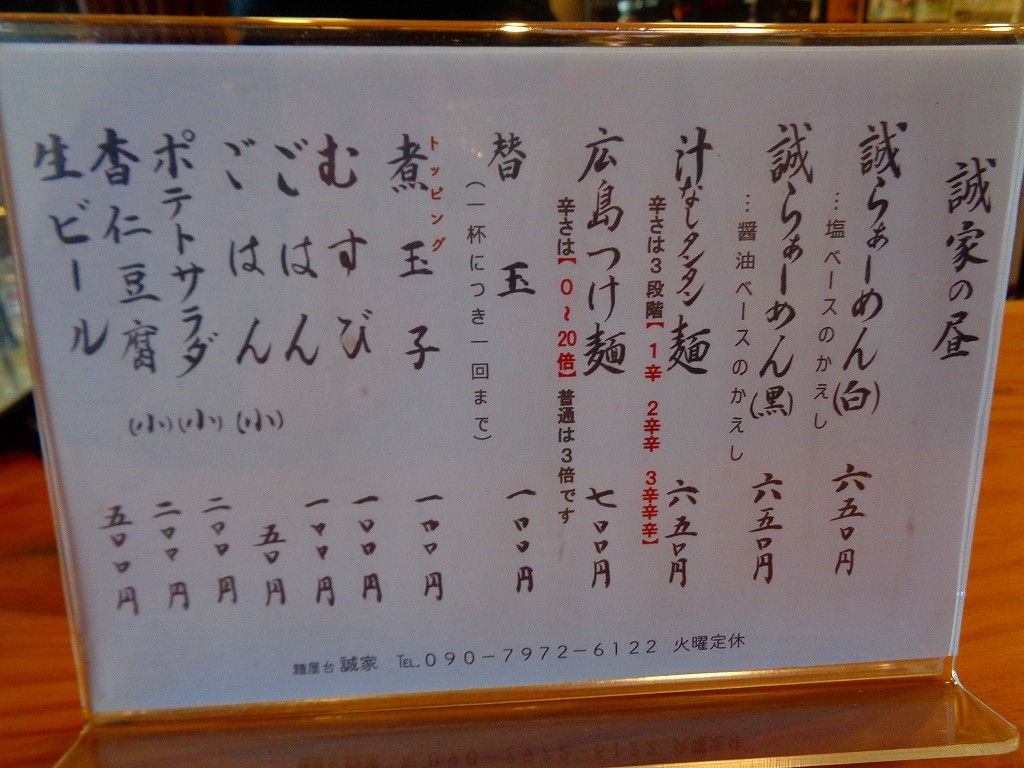 誠家の昼
誠らぁーめん(白) 六五〇円
…塩ベースのかえし
誠らぁーめん(黒) 六五〇円
…醤油ベースのかえし
汁なしタンタン麺 六五〇円
辛さは3段階【1辛 2辛辛 3辛辛辛】
広島つけ麺 七〇〇円
辛さは【0～20倍】普通は3倍です
替玉 一〇〇円
(一杯につき一回まで)
トッピング
煮玉子 一〇〇円
むすび 一〇〇円
ごはん 一〇〇円
ごはん(小) 五〇円
ポテトサラダ(小) 二〇〇円
杏仁豆腐(小) 二〇〇円
生ビール 五〇〇円
麺屋台 誠家 TEL.090-7972-6122 火曜定休